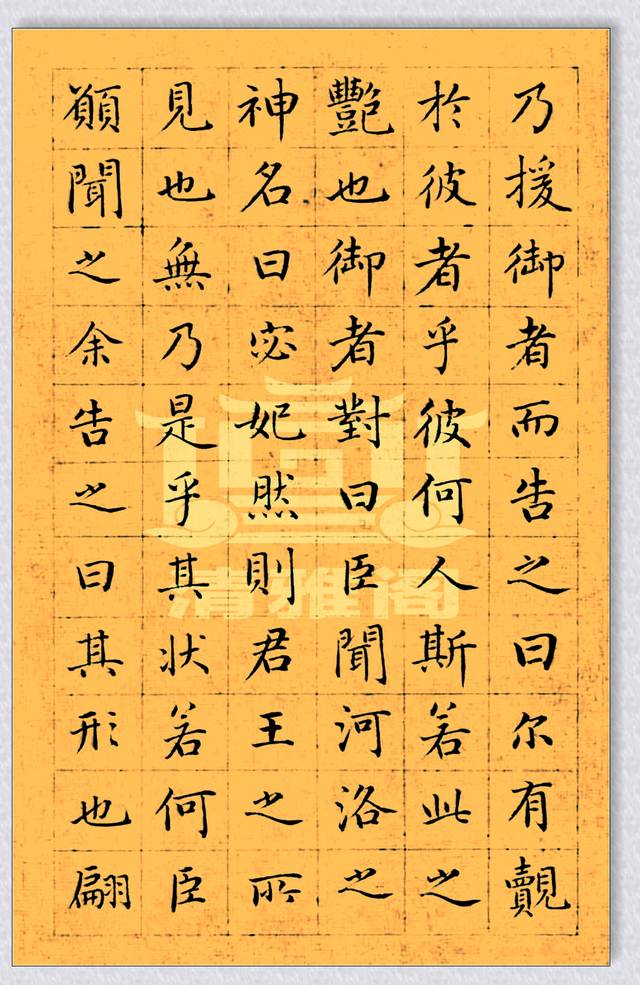 乃援御者而告之曰尔有覿
於彼者乎彼何人斯若此之
艷也御者對曰臣聞河洛之
神名曰宓妃然則君王之所
見也無乃是乎其狀若何臣
願聞之余告之曰其形也翩
清雅阁